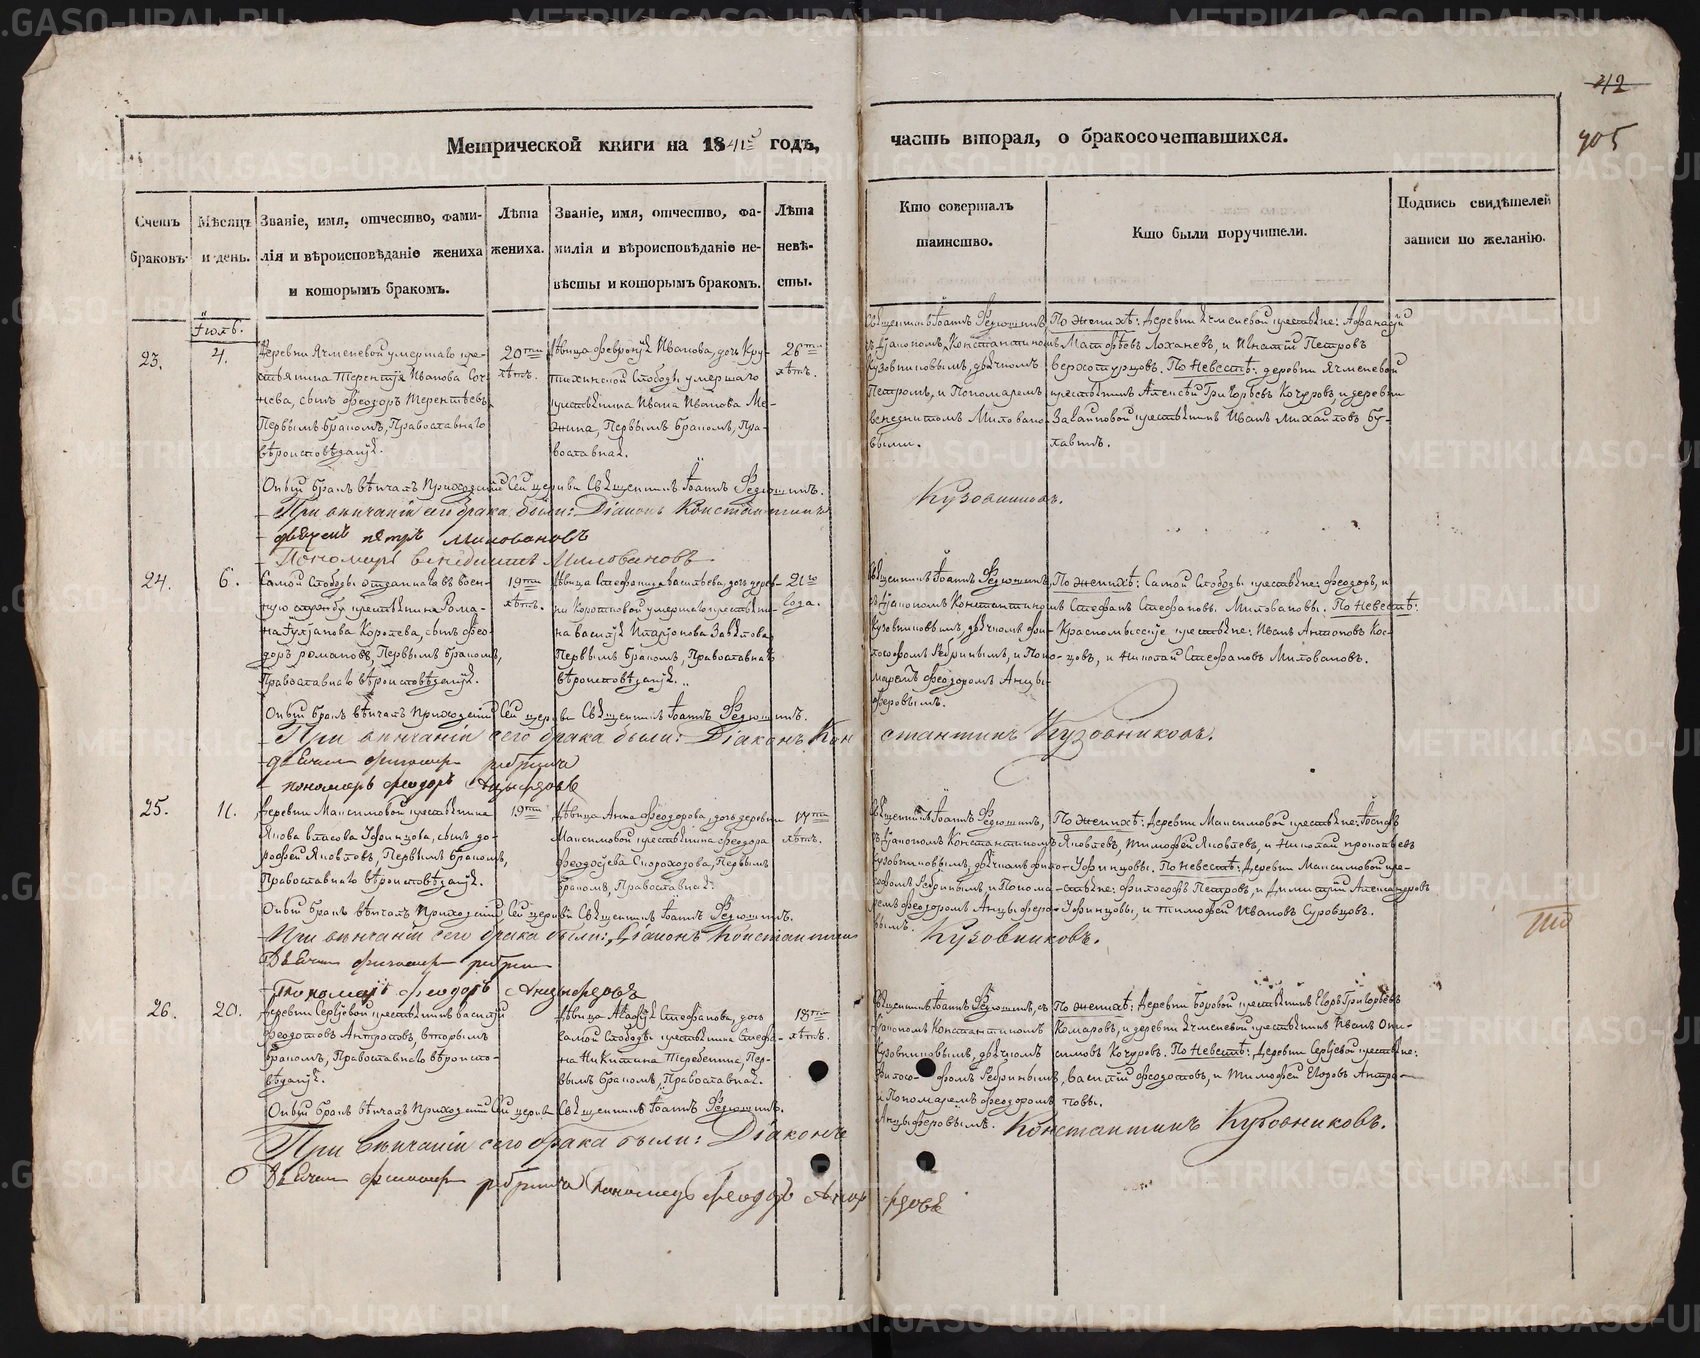 METRIKI.GASO-URAL.RU
42
405
Метрической книги на 1841й годъ, часть вторая, о бракосочетавшихся.
Счетъ браковъ.
Мѣсяцъ и день.
Званіе, имя, отчество, фамилія и вѣроисповѣданіе жениха и которымъ бракомъ.
Лѣта жениха.
Званіе, имя, отчество, фамилія и вѣроисповѣданіе невѣсты и которымъ бракомъ.
Лѣта невѣсты.
Кто совершалъ таинство.
Кто были поручители.
Подпись свидѣтелей записи по желанію.
Іюль.
23.
4.
Деревни Ячменевой умершаго кре-
стьянина Терентія Иванова
сынъ Феодоръ Терентьевъ
Первымъ бракомъ, Православнаго
вѣроисповѣданія.
20ти
лѣтъ.
Дѣвица Февронія Иванова, дочь Кру-
тихинской Слободы умершаго
крестьянина Ивана Иванова
Первымъ бракомъ, Пра-
вославная.
26ти
лѣтъ.
Священникъ Іоаннъ
съ Діакономъ Константиномъ
Кузовниковымъ, дьячкомъ
Петромъ, и Пономаремъ
Венедиктомъ Миловано-
выми.
По женихѣ: Деревни Ячменевой крестьяне: Афанасій
Матфѣевъ Лохановъ, и Игнатій Петровъ
Верхотурцовъ. По Невестѣ: деревни Ячменевой
крестьянинъ Алексѣй Григорьевъ Кочуровъ, и деревни
крестьянинъ Иванъ Михайловъ
Оный бракъ вѣнчалъ Приходскій Сей церкви Священникъ Іоаннъ
При вѣнчаніи сего брака были: Діаконъ Константинъ Кузовниковъ.
дьячекъ петръ Миловановъ
Пономарь венедиктъ Миловановъ
24.
6.
Самой Слободы отданнаго въ воен-
ную службу крестьянина Рома-
на Королева, сынъ Фео-
доръ Романовъ, Первымъ бракомъ,
Православнаго вѣроисповѣданія.
19ти
лѣтъ.
Дѣвица Стефанида Васильева, дочь дерев-
ни Коротковой умершаго крестьяни-
на Василія Иларіонова Завьялова
Первымъ бракомъ, Православнаго
вѣроисповѣданія.
21го
года.
Священникъ Іоаннъ
съ Діакономъ Константиномъ
Кузовниковымъ, дьячкомъ Фи-
лософомъ Ребринымъ, и Поно-
маремъ Феодоромъ Анцы-
феровымъ.
По женихѣ: Самой Слободы крестьяне: Феодоръ, и
Стефанъ Стефановы Миловановы. По Невестѣ:
Красномысскіе крестьяне: Иванъ Антоновъ Кос-
цовъ, и Николай Стефановъ Миловановъ.
Оный бракъ вѣнчалъ Приходскій Сей церкви Священникъ Іоаннъ
При вѣнчаніи сего брака были: Діаконъ Константинъ Кузовниковъ.
дьячекъ
пономарь феодоръ
25.
11.
Деревни Максимовой крестьянина
Якова Власова Уфинцова, сынъ До-
рофей Яковлевъ, Первымъ бракомъ,
Православнаго вѣроисповѣданія.
19ти
Дѣвица Анна Феодорова, дочь деревни
Максимовой крестьянина Феодора
Феодосіева Скороходова, Первымъ
бракомъ, Православная.
17ти
лѣтъ.
Священникъ Іоаннъ
съ Діакономъ Константиномъ
Кузовниковымъ, дьячкомъ Фило-
софомъ Ребринымъ, и Понома-
ремъ Феодоромъ Анцыферо-
вымъ.
По женихѣ: Деревни Максимовой крестьяне: Іосифъ
Яковлевъ, Тимофей Яковлевъ, и Николай Прокопьевъ
Уфинцовы. По Невестѣ: Деревни Максимовой кре-
стьяне: Философъ Петровъ, и Димитрій Александровъ
Уфинцовы, и Тимофей Ивановъ Суровцовъ.
Оный бракъ вѣнчалъ Приходскій Сей церкви Священникъ Іоаннъ
При вѣнчаніи сего брака были: Діаконъ Константинъ Кузовниковъ.
Дьячекъ
Пономарь феодоръ Анцыферовъ
26.
20.
Деревни Сергіевой крестьянинъ Василій
Феодотовъ Антроповъ, вторымъ
бракомъ, Православнаго вѣроиспо-
вѣданія.
Дѣвица Агафія Стефанова, дочь
Самой Слободы крестьянина Стефа-
на Никитина Теребенина, Пер-
вымъ бракомъ, Православная.
18ти
лѣтъ.
Священникъ Іоаннъ съ
Діакономъ Константиномъ
Кузовниковымъ, дьячкомъ
Филосо-фомъ Ребринымъ,
и Пономаремъ Феодоромъ
Анцыферовымъ.
По женихѣ: Деревни Боровой крестьянинъ Егоръ Григорьевъ
Комаровъ, и деревни Ячменевой крестьянинъ Иванъ Они-
симовъ Кочуровъ. По Невестѣ: Деревни Сергіевой крестьяне:
Василій Феодотовъ, и Тимофей Егоровъ Антро-
повы.
Оный бракъ вѣнчалъ Приходскій Сей церкви Священникъ Іоаннъ
При вѣнчаніи сего брака были: Діаконъ Константинъ Кузовниковъ.
Дьячекъ